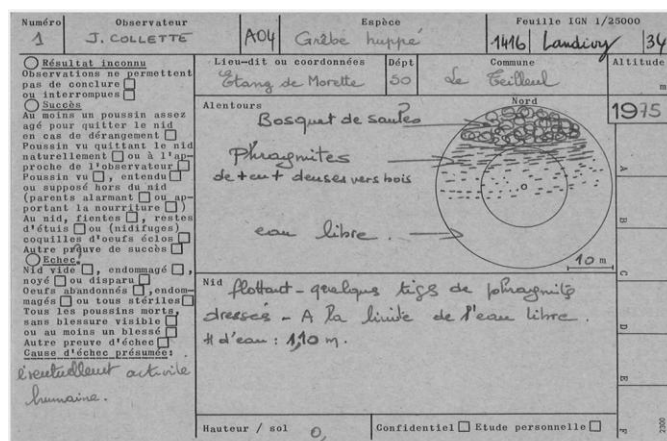 Numéro Observateur Espèce Feuille IGN 1/25000
1 J. COLLETTE A04 Grèbe huppé 1416 Landivy 34
Lieu-dit ou coordonnées Dépt Commune Altitude
Etang de Morette 50 Le Teilleul m
Résultat inconnu
Observations ne permettent
pas de conclure
ou interrompues
Succès
Au moins un poussin assez
agé pour quitter le nid
en cas de dérangement
Poussin vu quittant le nid
naturellement ou à l'ap-
proche de l'observateur
Poussin vu, entendu
ou supposé hors du nid
(parents alarmant ou ap-
portant la nourriture)
Au nid, fientes, restes
d'étuis ou (nidifuges)
coquilles d'oeufs éclos
Autre preuve de succès
Echec
Nid vide, endommagé,
noyé ou disparu
Oeufs abandonnés, endom-
magés ou tous stériles
Tous les poussins morts,
sans blessure visible
ou au moins un blessé
Autre preuve d'échec
Cause d'échec présumée:
éventuellement activité
humaine.
Alentours
Nord
1975
Bosquet de saules
Phragmites
de + en + denses vers bois
eau libre
10 m
A
B
C
D
E
F
Nid flottant - quelques tiges de phragmites
dressés - A la limite de l'eau libre.
H d'eau : 1,10 m.
Hauteur / sol 0, Confidentiel Etude personnelle